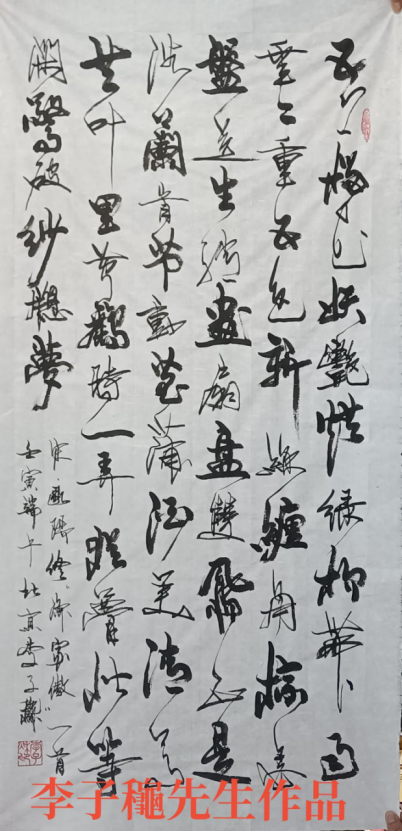 五月榴花妖艷烘綠柳帶雨
垂垂重五色新絲纏角粽金
盤送生綃畫扇盘雙鳳正是
浴蘭時節動菖蒲酒美清尊
共叶里黄鸝時一弄猶瞢忪等
閒驚破紗窗夢
宋歐陽修漁家傲一首
壬寅端午北京李子龝
李子龝先生作品